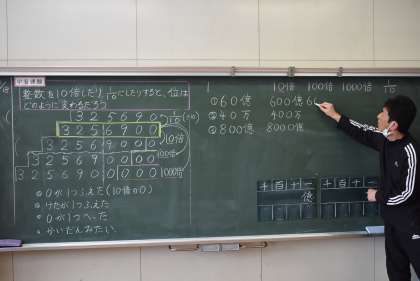 学習課題
整数を10倍したり、1/10にしたりすると、位は
どのように変わるだろう
325690 1/10
3256900
32569000 10倍
325690000 100倍
3256900000 1000倍
0が1つふえた(10倍が0)
けたが1つふえた
0が1つへった
かいだんみたい
1
10倍 100倍 1000倍 1/10
①60億 600億 6
②40万 400万
③800億 8000億
千百十一 千百十一
億